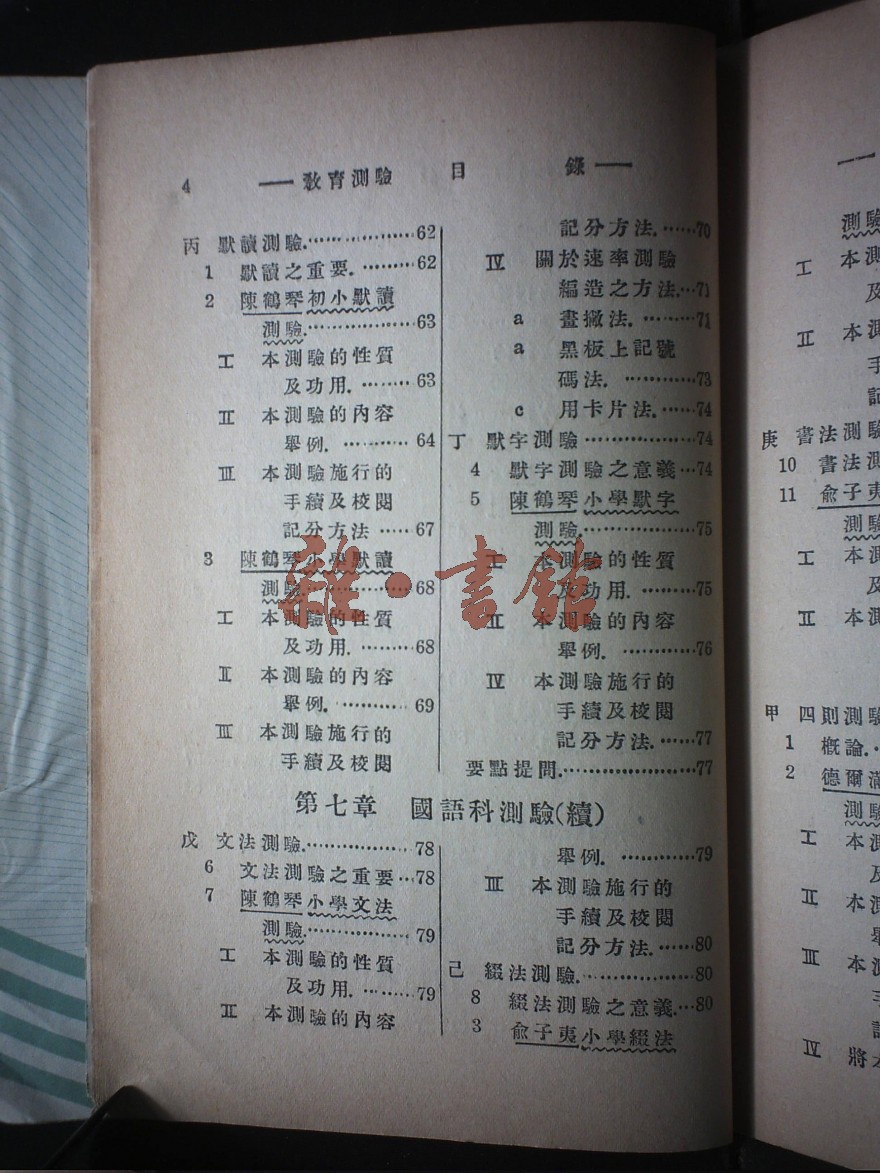 4 —— 敎育測驗 目 錄 ——
丙 默讀測驗.………………62
1 默讀之重要.………62
2 陳鶴琴初小默讀
測驗.………………63
Ⅰ 本測驗的性質
及功用.………63
Ⅱ 本測驗的內容
舉例.…………64
Ⅲ 本測驗施行的
手續及校閱
記分方法……67
3 陳鶴琴小學默讀
測驗.………………68
Ⅰ 本測驗的性質
及功用.………68
Ⅱ 本測驗的內容
舉例.…………69
Ⅲ 本測驗施行的
手續及校閱
記分方法.……70
Ⅳ 關於速率測驗
編造之方法.…71
a 畫撇法.………71
a 黑板上記號
碼法.…………73
c 用卡片法.……74
丁 默字測驗………………74
4 默字測驗之意義…74
5 陳鶴琴小學默字
測驗.………………75
Ⅰ 本測驗的性質
及功用.………75
Ⅱ 本測驗的內容
舉例.…………76
Ⅳ 本測驗施行的
手續及校閱
記分方法.……77
要點提問.………………77
第七章 國語科測驗(續)
戊 文法測驗.………………78
6 文法測驗之重要…78
7 陳鶴琴小學文法
測驗.………………79
Ⅰ 本測驗的性質
及功用.………79
Ⅱ 本測驗的內容
舉例.…………79
Ⅲ 本測驗施行的
手續及校閱
記分方法.……80
己 綴法測驗.………………80
8 綴法測驗之意義.…80
3 俞子夷小學綴法
測驗
Ⅰ 本測
及
Ⅱ 本測
手
記
庚 書法測驗
10 書法測
11 俞子夷
測驗
Ⅰ 本測
及
Ⅱ 本測
甲 四則測驗
1 概論.……
2 德爾滿
測驗
Ⅰ 本測
及
Ⅱ 本測
舉
Ⅲ 本測
手
記
Ⅳ 將本
雜·書館